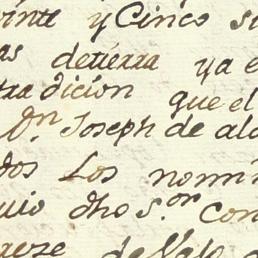 uinte y Cinco su
as detierra ya e
tradicion que el
Dn. Joseph de alc
dos Los nomi
uio dho s.or con